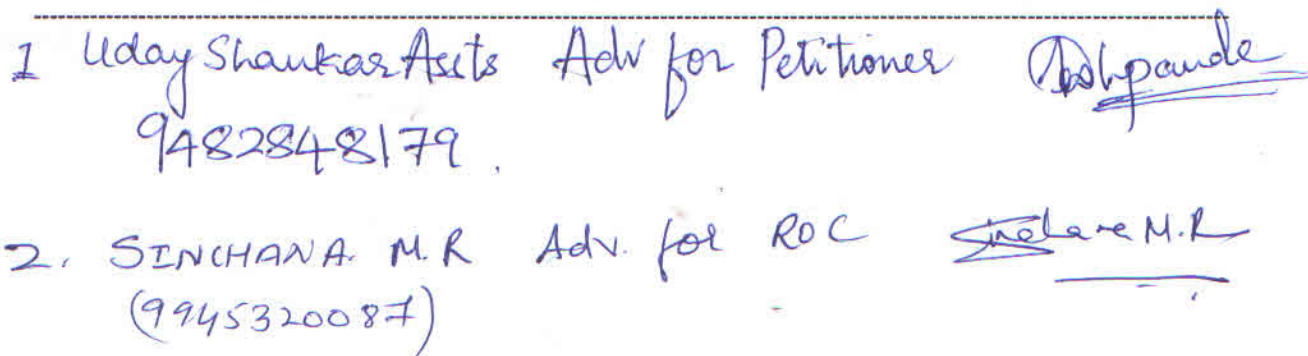 1 Uday Shankar Assts Adv for Petitioner Deshpande
9482848179.
2. SINCHANA. M.R Adv. for ROC Sinchana M.R
(9945320087)